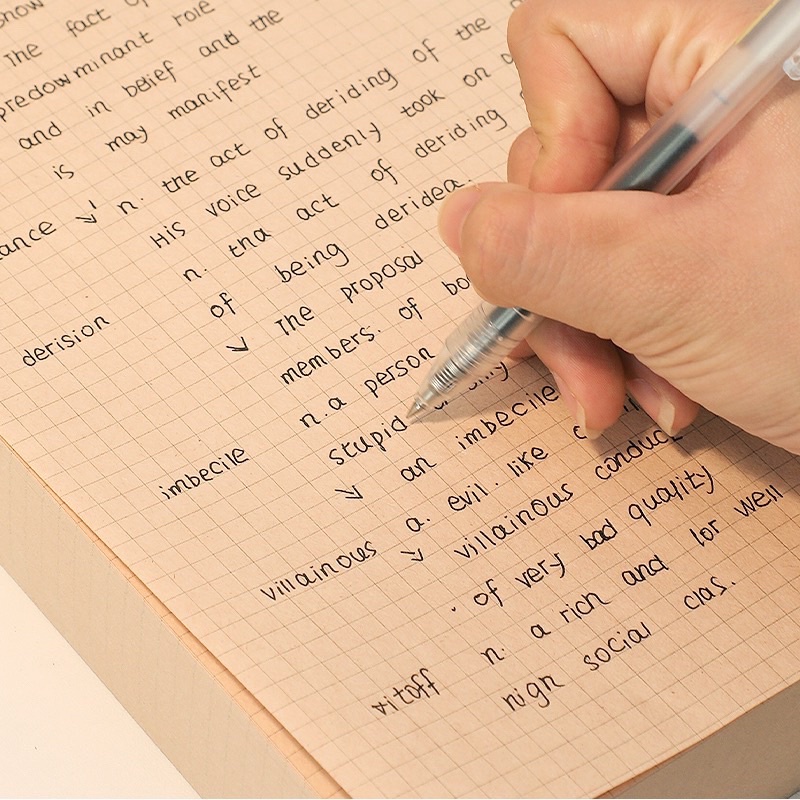 show
The fact of
predowminant role
and in belief and the
is may manifest
ance n. the act of deriding of the
His voice suddenly took on
n. tha act of deriding
of being deridea.
derision The proposal
members. of bo
n.a person
imbecile stupid or silly
an imbecile
a. evil. like
villainous villainous conduct
. of very bad quality
vitoff n. a rich and lor well
nign social clas.